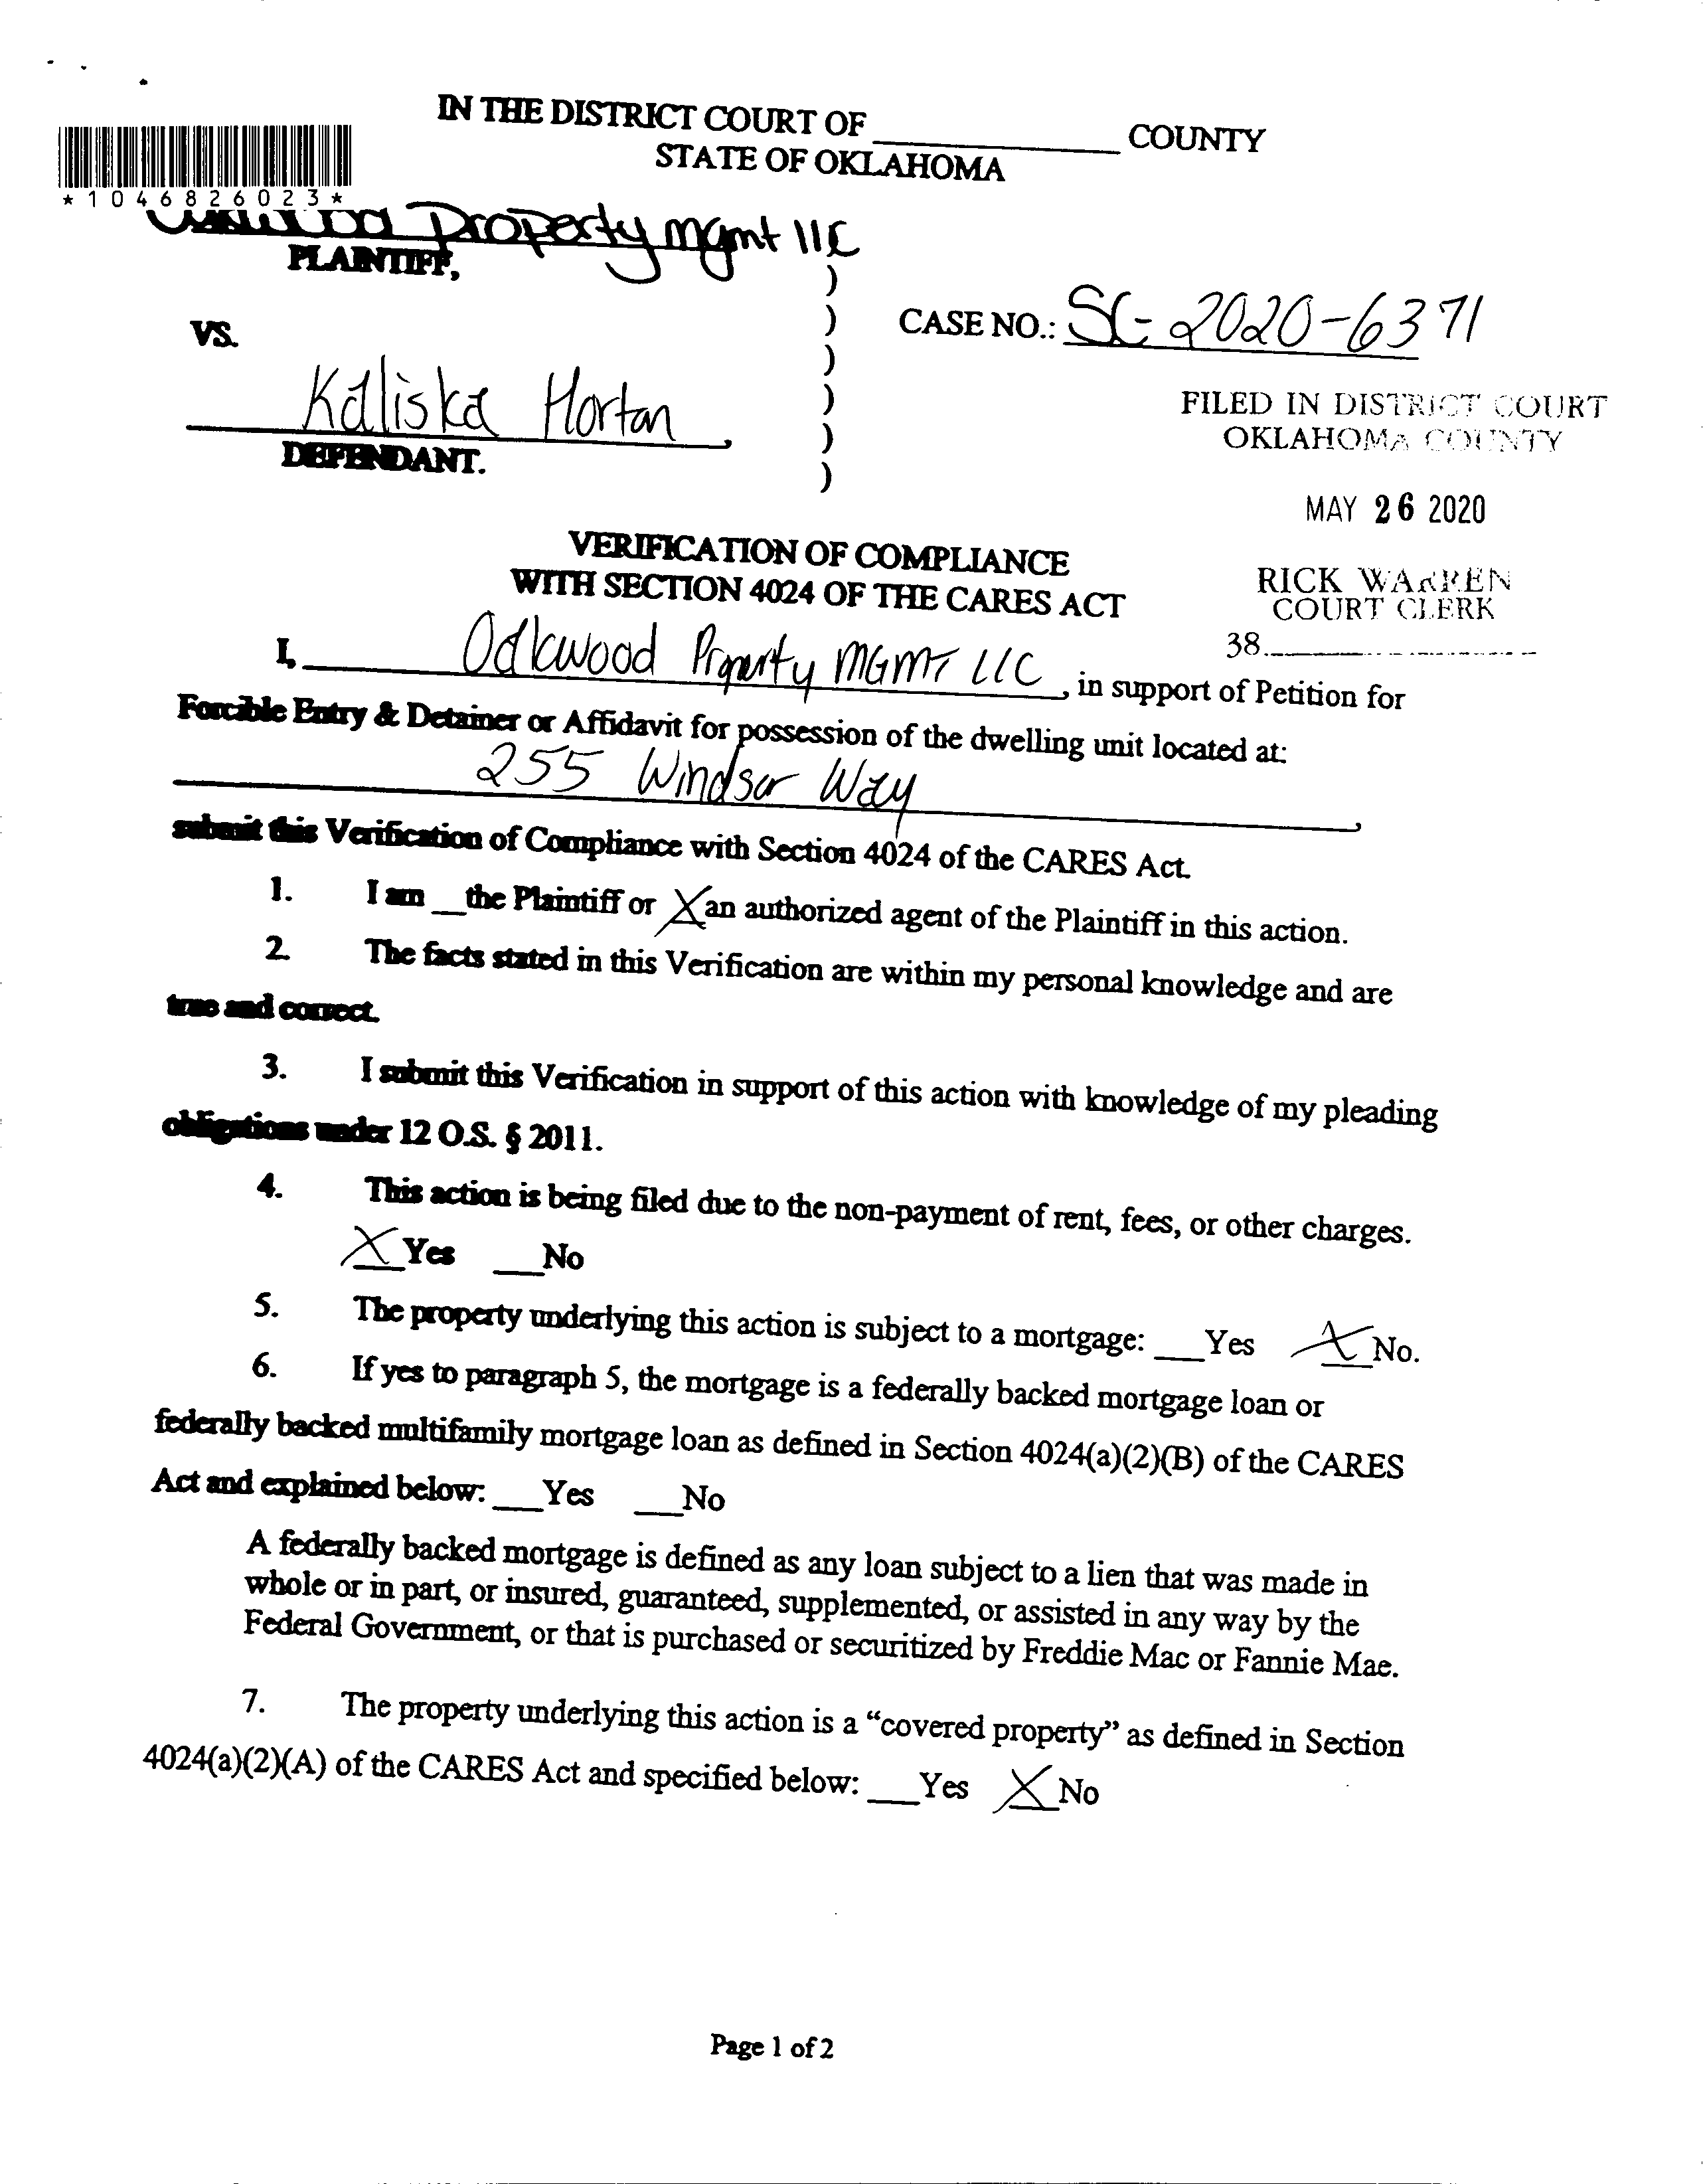 IN THE DISTRICT COURT OF ____________ COUNTY
STATE OF OKLAHOMA
*1046826023*
Property mgmt llc
PLAINTIFF,
)
VS.
) CASE NO.: SC-2020-6371
)
Kaliska Horton,
)
DEFENDANT.
)
)
FILED IN DISTRICT COURT
OKLAHOMA COUNTY
MAY 26 2020
RICK WARREN
COURT CLERK
38.____________
VERIFICATION OF COMPLIANCE
WITH SECTION 4024 OF THE CARES ACT
I, Oakwood Property MGMT LLC, in support of Petition for
Forcible Entry & Detainer or Affidavit for possession of the dwelling unit located at:
255 Windsor Way,
submit this Verification of Compliance with Section 4024 of the CARES Act.
1. I am __the Plaintiff or X an authorized agent of the Plaintiff in this action.
2. The facts stated in this Verification are within my personal knowledge and are
true and correct.
3. I submit this Verification in support of this action with knowledge of my pleading
obligations under 12 O.S. § 2011.
4. This action is being filed due to the non-payment of rent, fees, or other charges.
X Yes ___No
5. The property underlying this action is subject to a mortgage: ___Yes X No.
6. If yes to paragraph 5, the mortgage is a federally backed mortgage loan or
federally backed multifamily mortgage loan as defined in Section 4024(a)(2)(B) of the CARES
Act and explained below: ___Yes ___No
A federally backed mortgage is defined as any loan subject to a lien that was made in
whole or in part, or insured, guaranteed, supplemented, or assisted in any way by the
Federal Government, or that is purchased or securitized by Freddie Mac or Fannie Mae.
7. The property underlying this action is a “covered property” as defined in Section
4024(a)(2)(A) of the CARES Act and specified below: ___Yes X No
Page 1 of 2